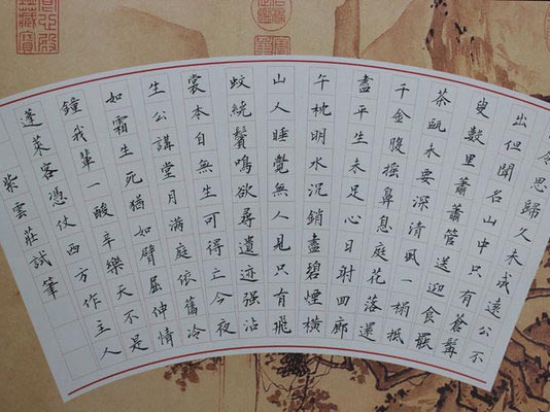 令思歸久未成遠公不
出但聞名山中只有蒼髯
叟數里蕭蕭管送迎食罷
茶甌未要深清風一榻抵
千金腹搖鼻息庭花落還
盡平生未足心日射回廊
午枕明水沉銷盡碧煙橫
山人睡覺無人見只有飛
蚊繞鬢鳴欲尋遺迹强沾
裳本自無生可得亡今夜
生公講堂月滿庭依舊冷
如霜生死猶如臂屈伸情
鐘我輩一酸辛樂天不是
蓬萊客憑仗西方作主人
紫雲莊試筆